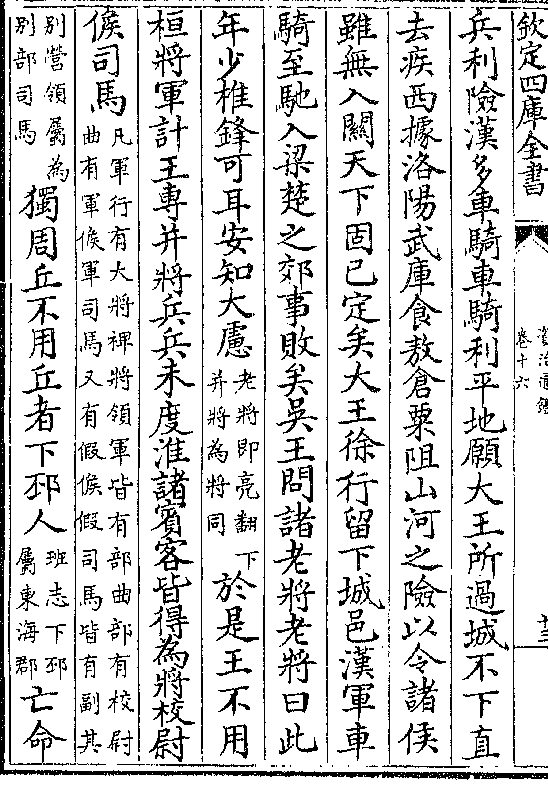 欽定四庫全書
資治通鑑
卷十六
十三
兵利險漢多車騎車騎利平地願大王所過城不下直
去疾西據洛陽武庫食敖倉粟阻山河之險以令諸侯
雖無入關天下固已定矣大王徐行留下城邑漢軍車
騎至馳入梁楚之郊事敗矣吳王問諸老將老將曰此
年少椎鋒可耳安知大慮老將即亮翻下并將為將同於是王不用
桓將軍計王専并將兵兵未度淮諸賓客皆得為將校尉
候司馬凡軍行有大將裨將領軍皆有部曲部有校尉曲有軍候軍司馬又有假候假司馬皆有副其
別營領屬為別部司馬獨周丘不用丘者下邳人班志下邳屬東海郡亡命